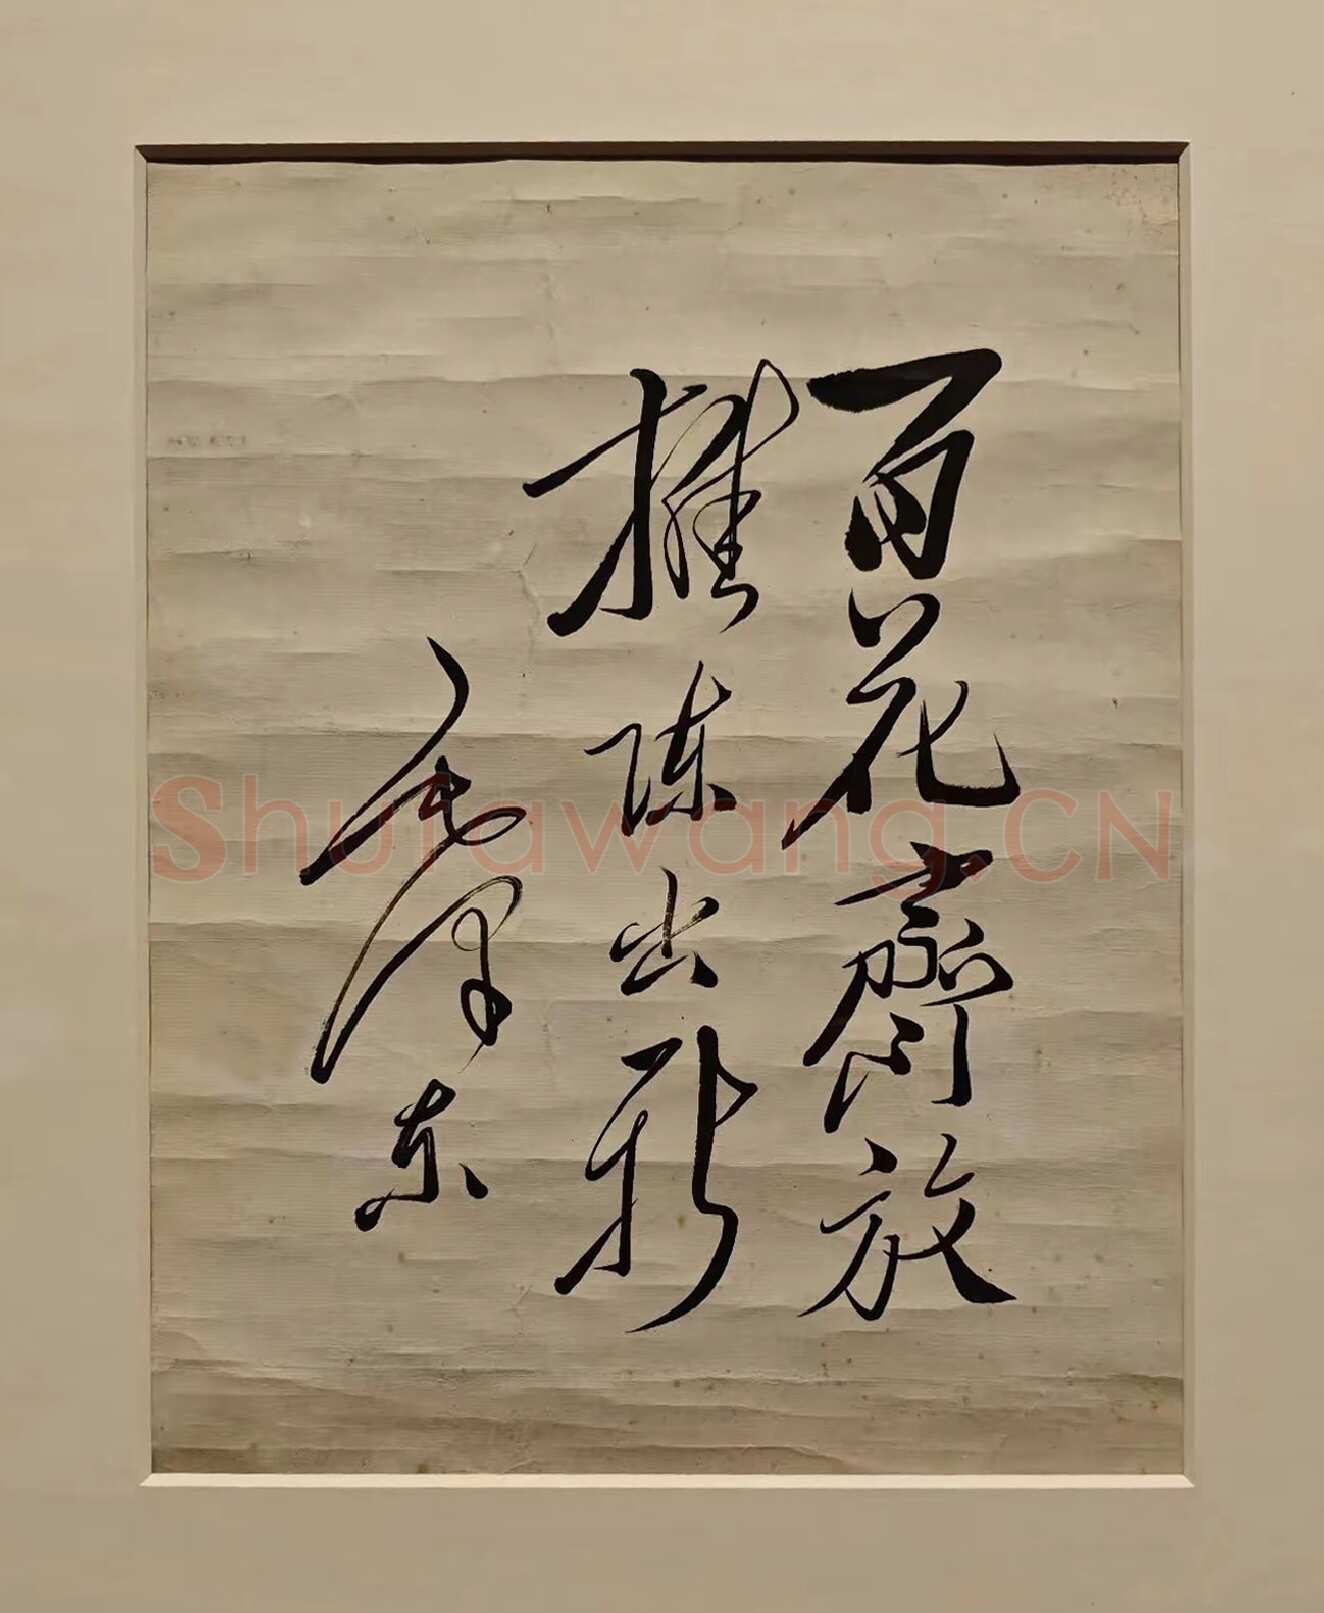 百花齊放
推陳出新
毛澤東
Shufawang.CN